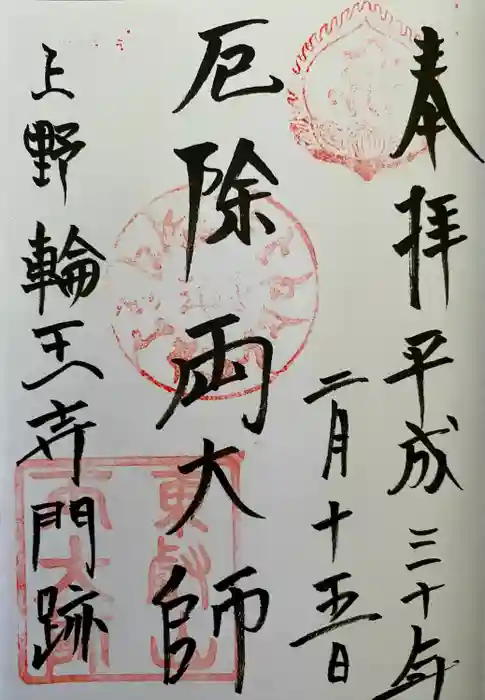 奉拝 平成三十年
二月十五日
厄除両大師
上野輪王寺門跡